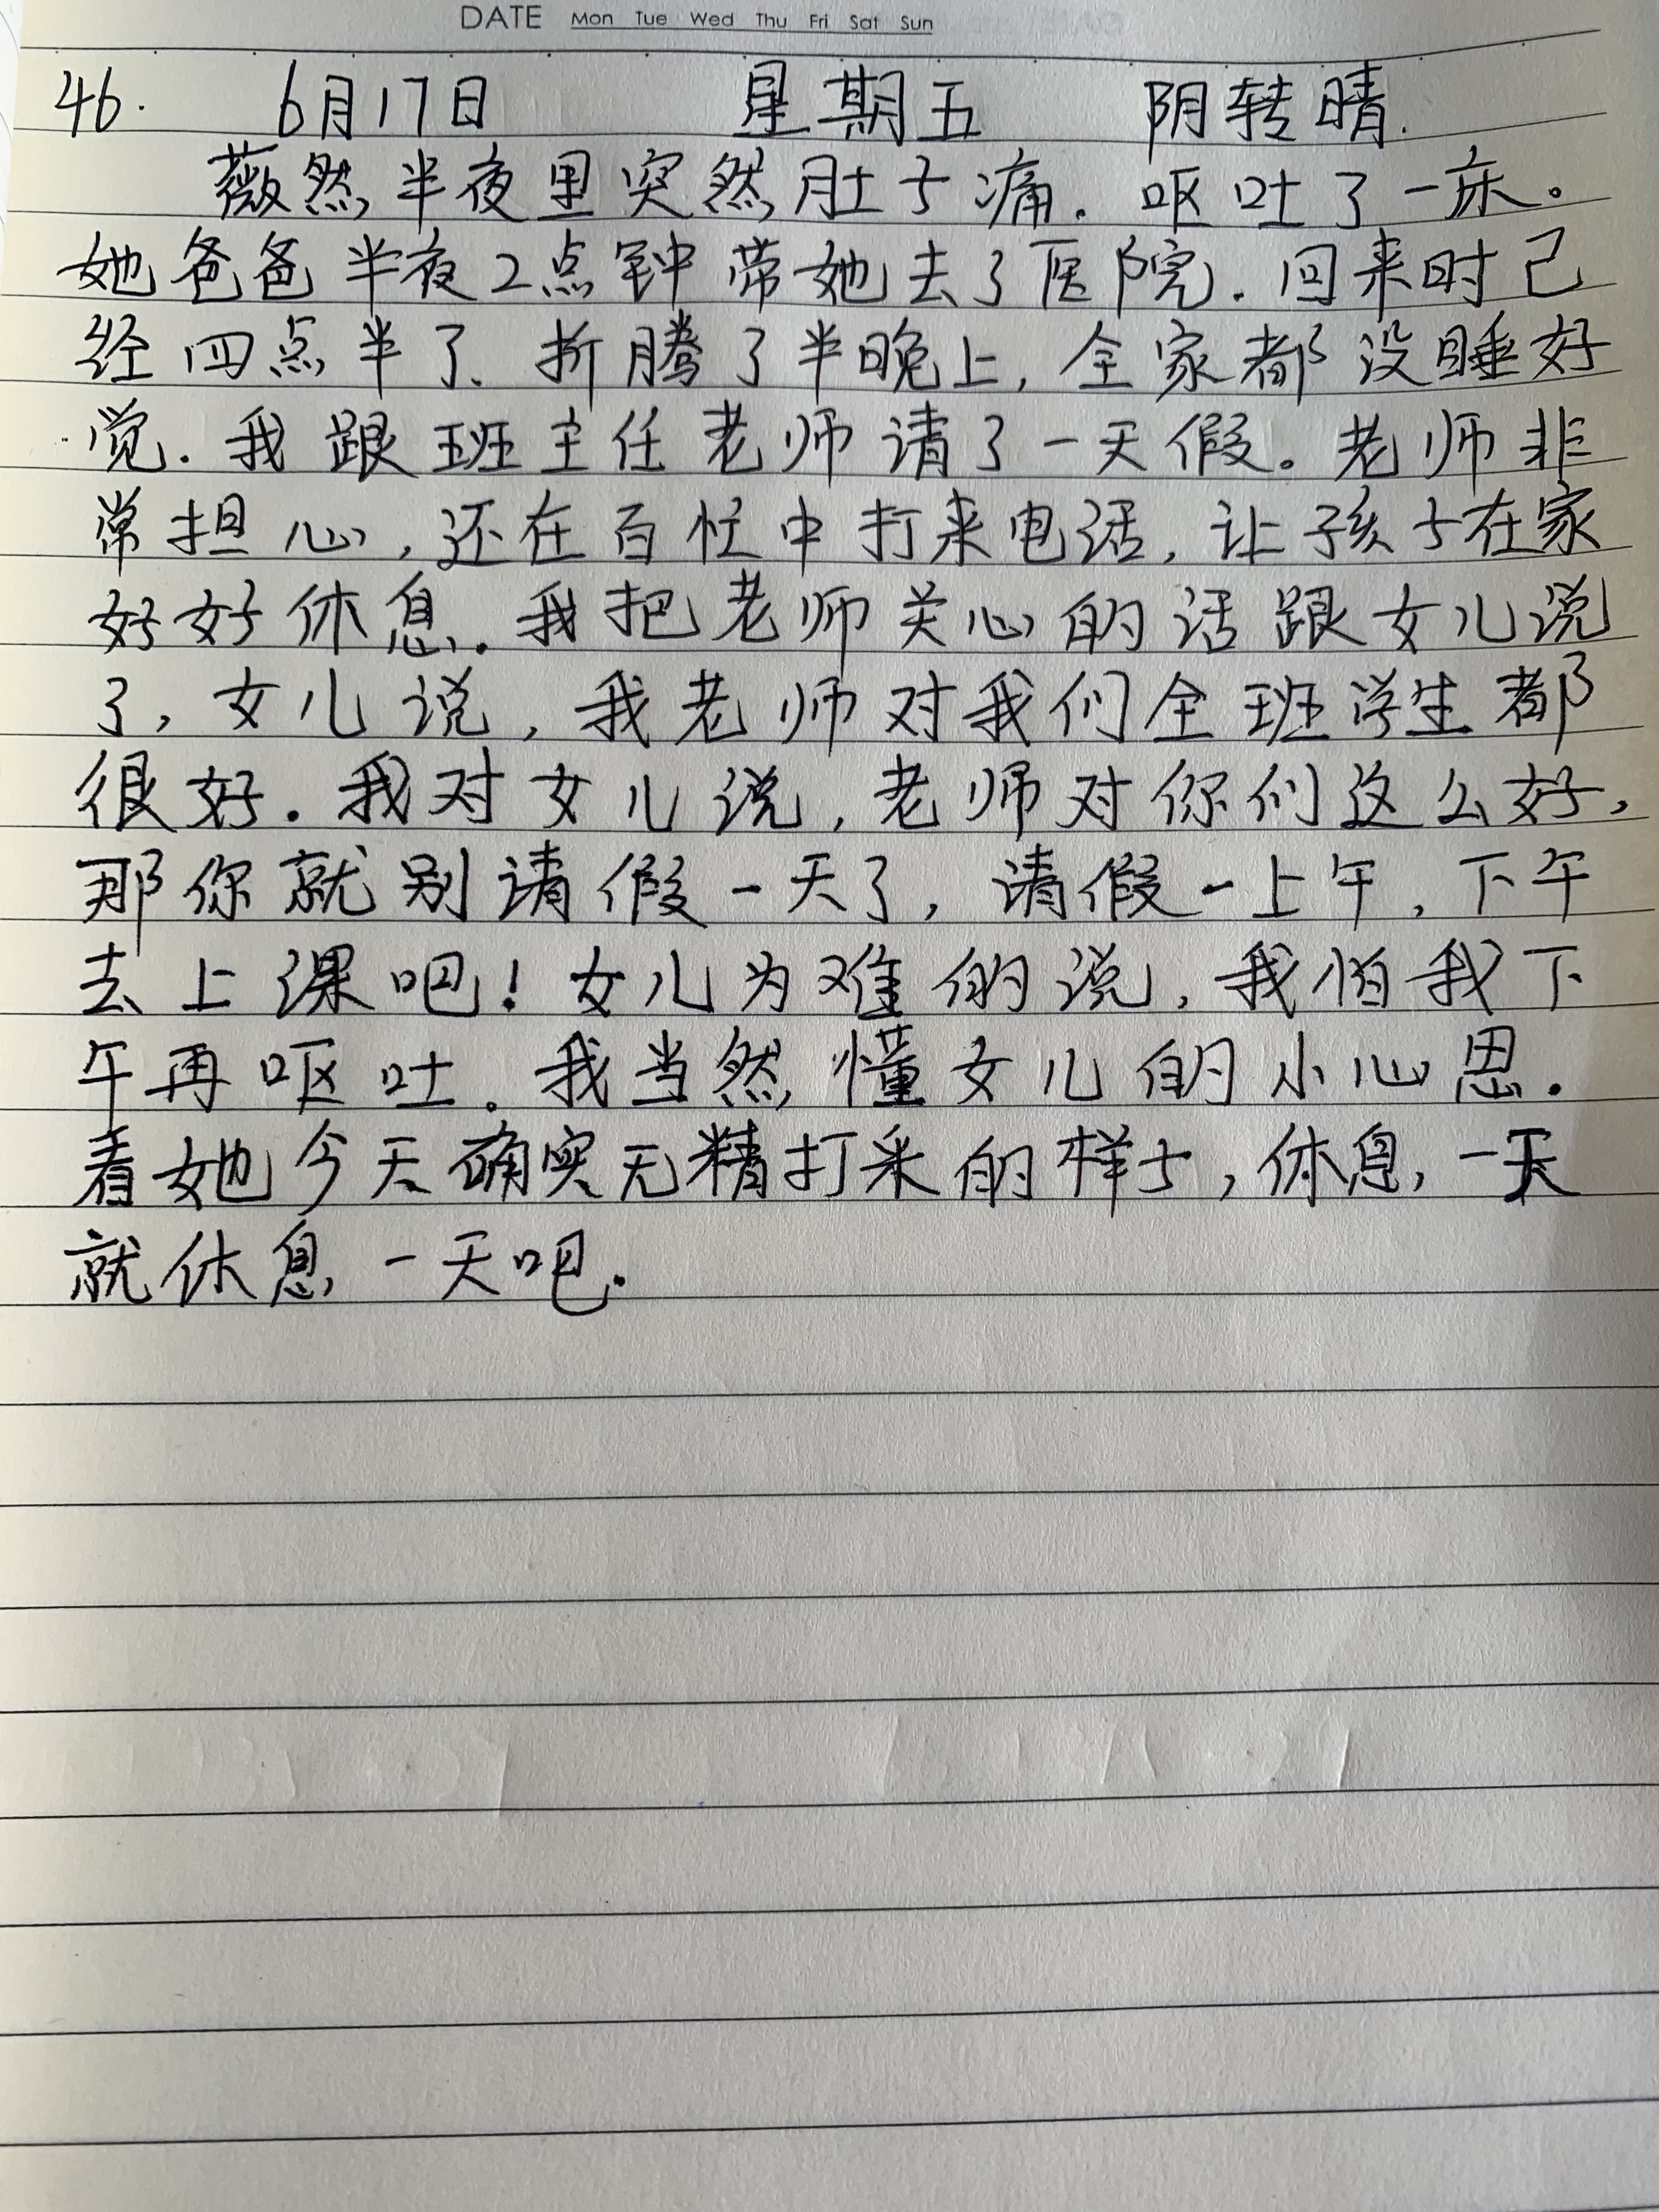 DATE Mon Tue Wed Thu Fri Sat Sun
46. 6月17日 星期五 阴转晴.
薇然半夜里突然肚子痛. 呕吐了一床。
她爸爸半夜2点钟带她去了医院. 回来时已
经四点半了、折腾了半晚上, 全家都没睡好
觉. 我跟班主任老师请了一天假。老师非
常担心, 还在百忙中打来电话, 让孩子在家
好好休息. 我把老师关心的话跟女儿说
了, 女儿说, 我老师对我们全班学生都
很好. 我对女儿说, 老师对你们这么好,
那你就别请假一天了, 请假一上午, 下午
去上课吧! 女儿为难的说, 我怕我下
午再呕吐。我当然懂女儿的小心思.
看她今天确实无精打采的样子, 休息, 一天
就休息一天吧.